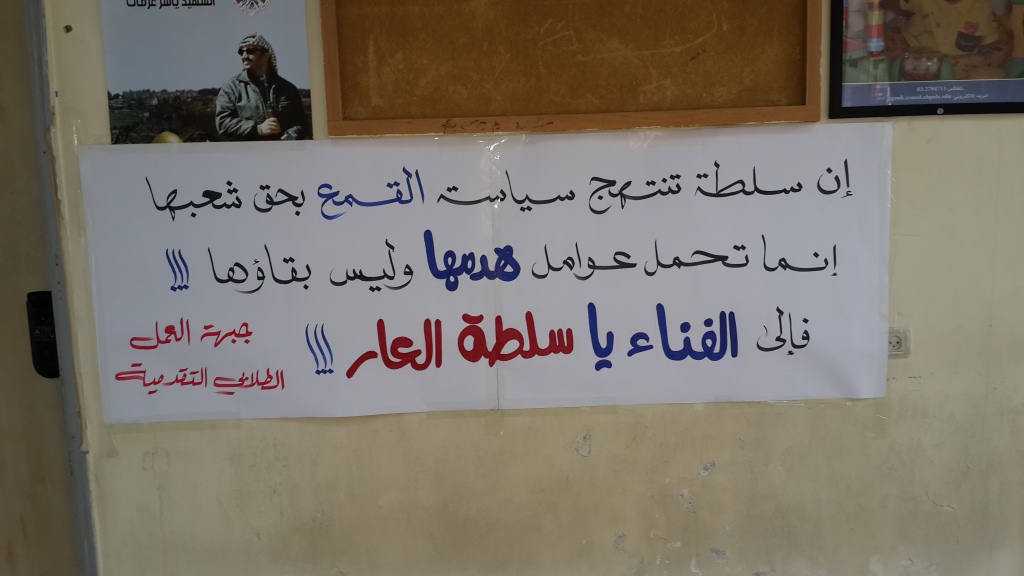 الشهيد ياسر عرفات
إن سلطة تنتهج سياسة القمع بحق شعبها
إنما تحمل عوامل هدمها وليس بقاؤها !!!
فإلى الفناء يا سلطة العار !!!
جبهة العمل
الطلابي التقدمية